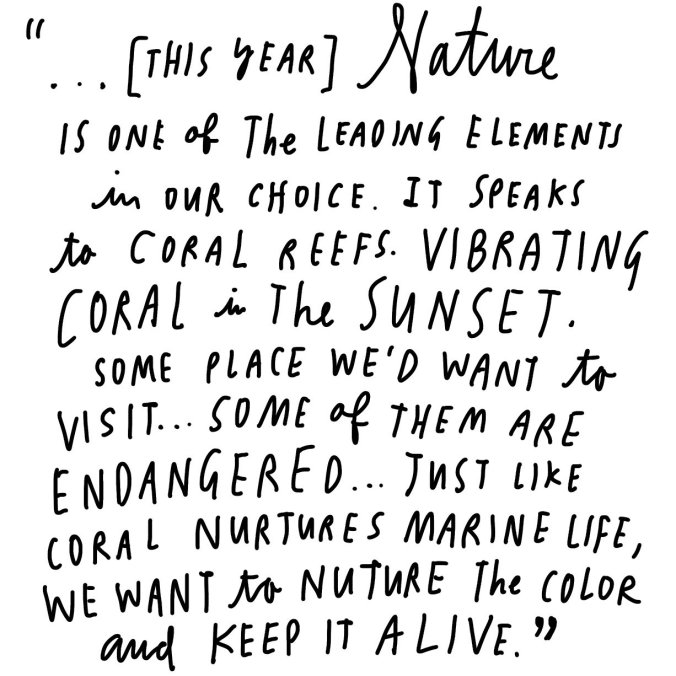 “... [THIS YEAR] Nature
IS ONE of The LEADING ELEMENTS
in OUR CHOICE. IT SPEAKS
to CORAL REEFS. VIBRATING
CORAL in The SUNSET.
SOME PLACE WE'D WANT to
VISIT... SOME of THEM ARE
ENDANGERED... JUST LIKE
CORAL NURTURES MARINE LIFE,
WE WANT to NUTURE The COLOR
and KEEP IT ALIVE.”